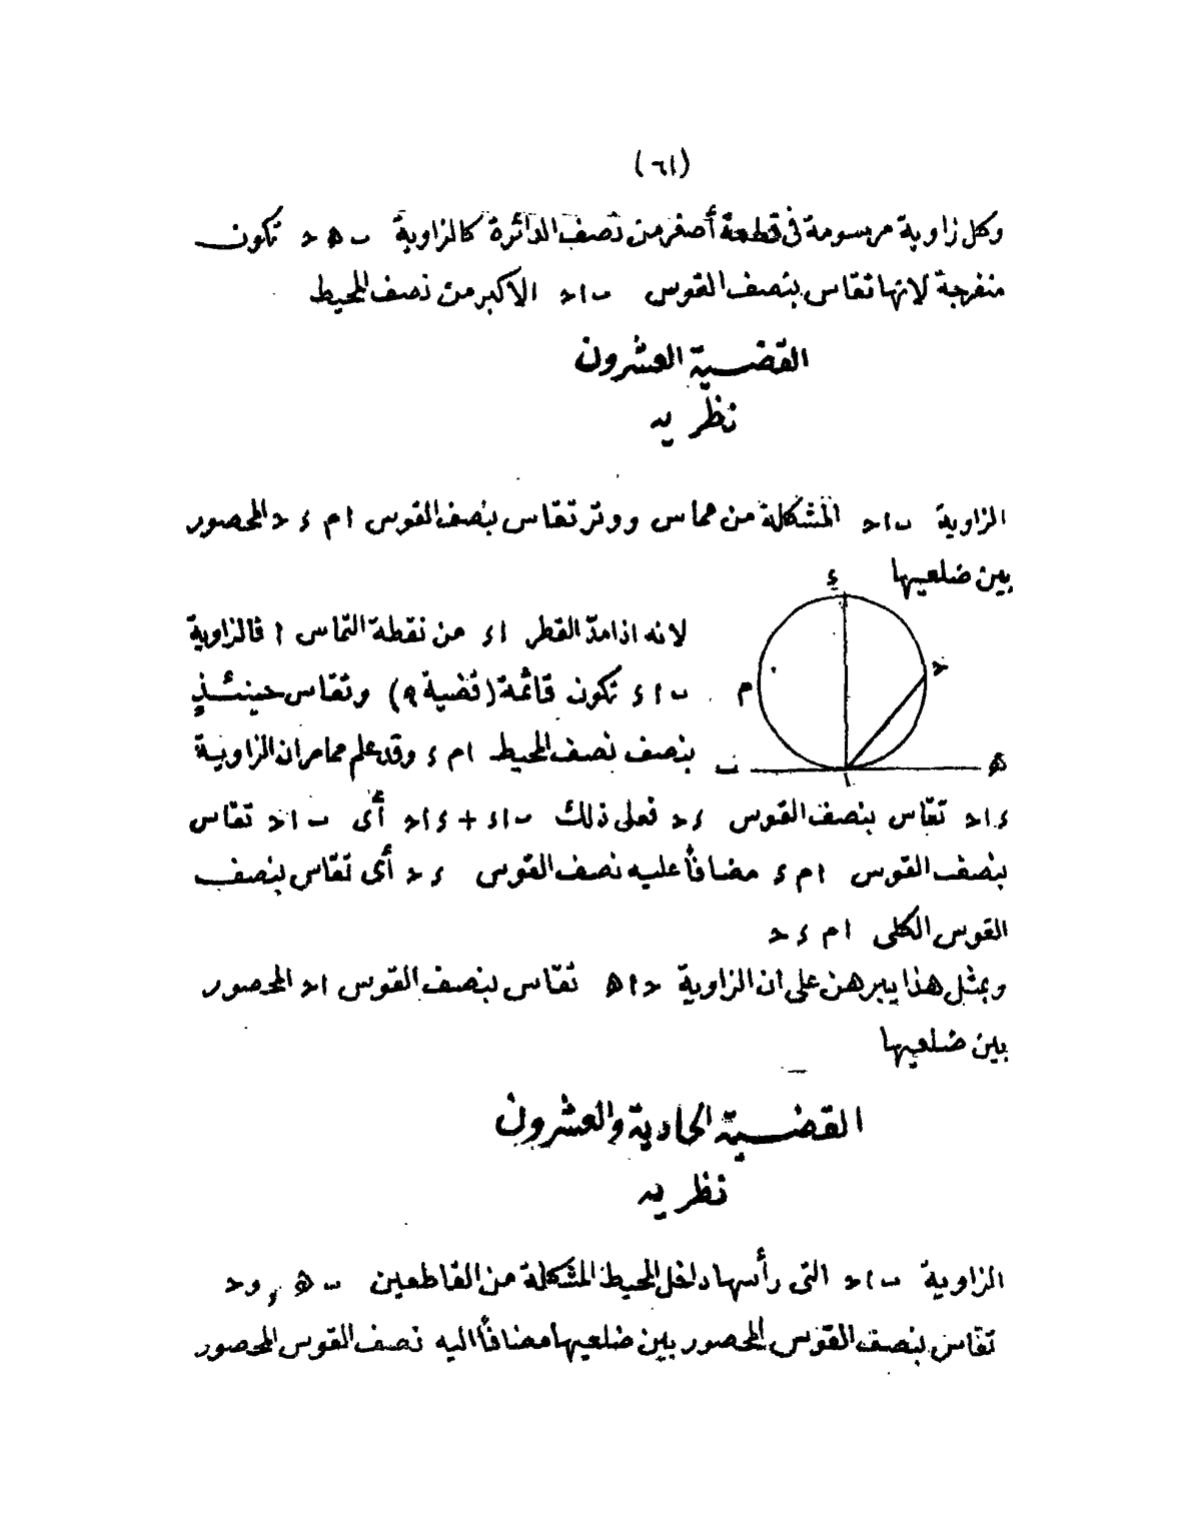 (٦١)
وكل زاوية مرسومة فى قطعة أصغر من نصف الدائرة كالزاوية ب ه د تكون
منفرجة لانها تقاس بنصف القوس ب ا د الاكبر من نصف المحيط
القضية العشرون
نظريه
الزاوية ب ا د المشكلة من مماس ووتر تقاس بنصف القوس ا م ء د المحصور
بين ضلعيها
ء
د
م
ب
ه
ا
لانه اذا مدّ القطر ا ء من نقطة التماس ا فالزاوية
ب ا ء تكون قائمة (قضية ٩) وتقاس حينئذٍ
بنصف نصف المحيط ا م ء وقد علم مما مر ان الزاوية
ء ا د تقاس بنصف القوس ء د فعلى ذلك ب ا ء + ء ا د أى ب ا د تقاس
بنصف القوس ا م ء مضافاً عليه نصف القوس ء د أى تقاس بنصف
القوس الكلى ا م ء د
وبمثل هذا يبرهن على ان الزاوية د ا ه تقاس بنصف القوس ا د المحصور
بين ضلعيها
القضية الحادية والعشرون
نظريه
الزاوية ب ا د التى رأسها داخل المحيط المشكلة من القاطعين ب ه , و د
تقاس بنصف القوس المحصور بين ضلعيها مضافاً اليه نصف القوس المحصور